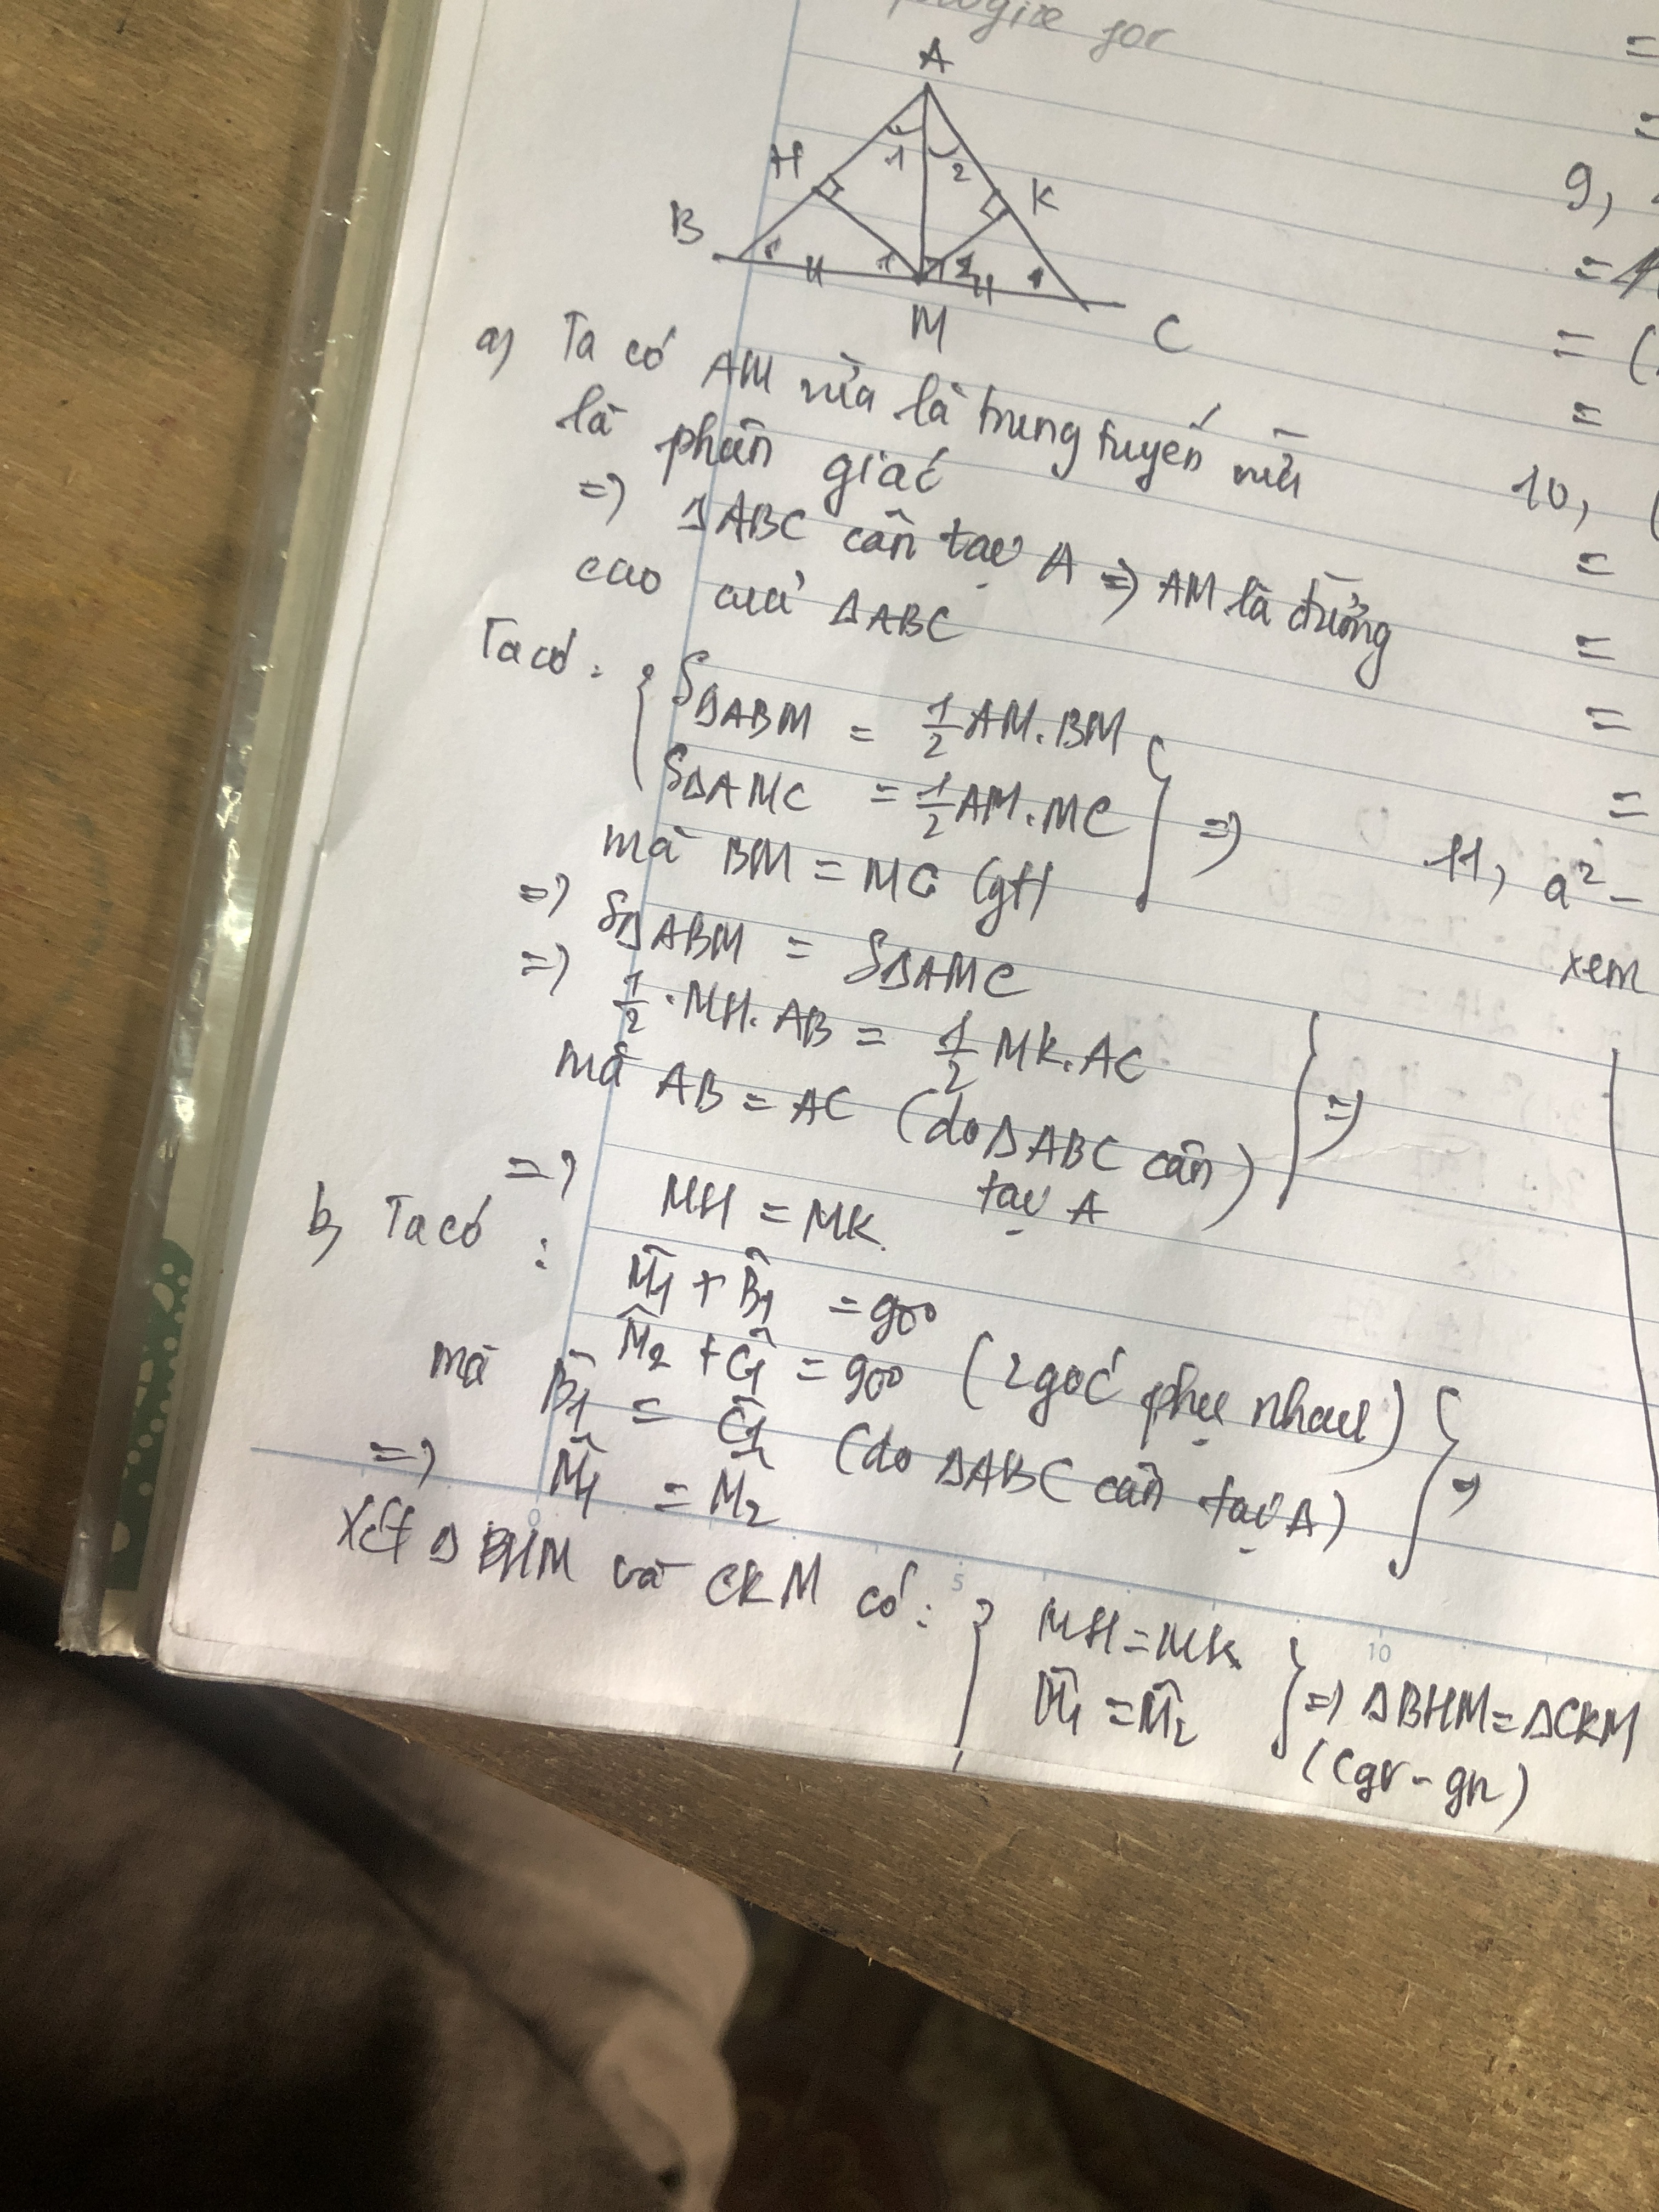 for
A
H
1
2
K
B
1
1
2
1
M
C
a) Ta có AM vừa là trung tuyến vừa
là phân giác
=> ΔABC cân tại A => AM là đường
cao của ΔABC
Ta có: { SΔABM = 1/2 AM.BM
SΔAMC = 1/2 AM.MC
mà BM = MC (gt) } =>
=> SΔABM = SΔAMC
=> 1/2.MH.AB = 1/2 MK.AC
mà AB = AC (do ΔABC cân
tại A) } =>
=> MH = MK.
b) Ta có: M̂1 + B̂1 = 90°
M̂2 + Ĉ1 = 90° (2 góc phụ nhau)
mà B̂1 = Ĉ1 (do ΔABC cân tại A) } =>
=> M̂1 = M̂2
Xét Δ BHM và CKM có: { MH = MK
M̂1 = M̂2 } => ΔBHM = ΔCKM
(cgv - gn)
=
=
9,
=
= (
=
10, (
=
=
=
=
11, a² -
xem
0
5
10